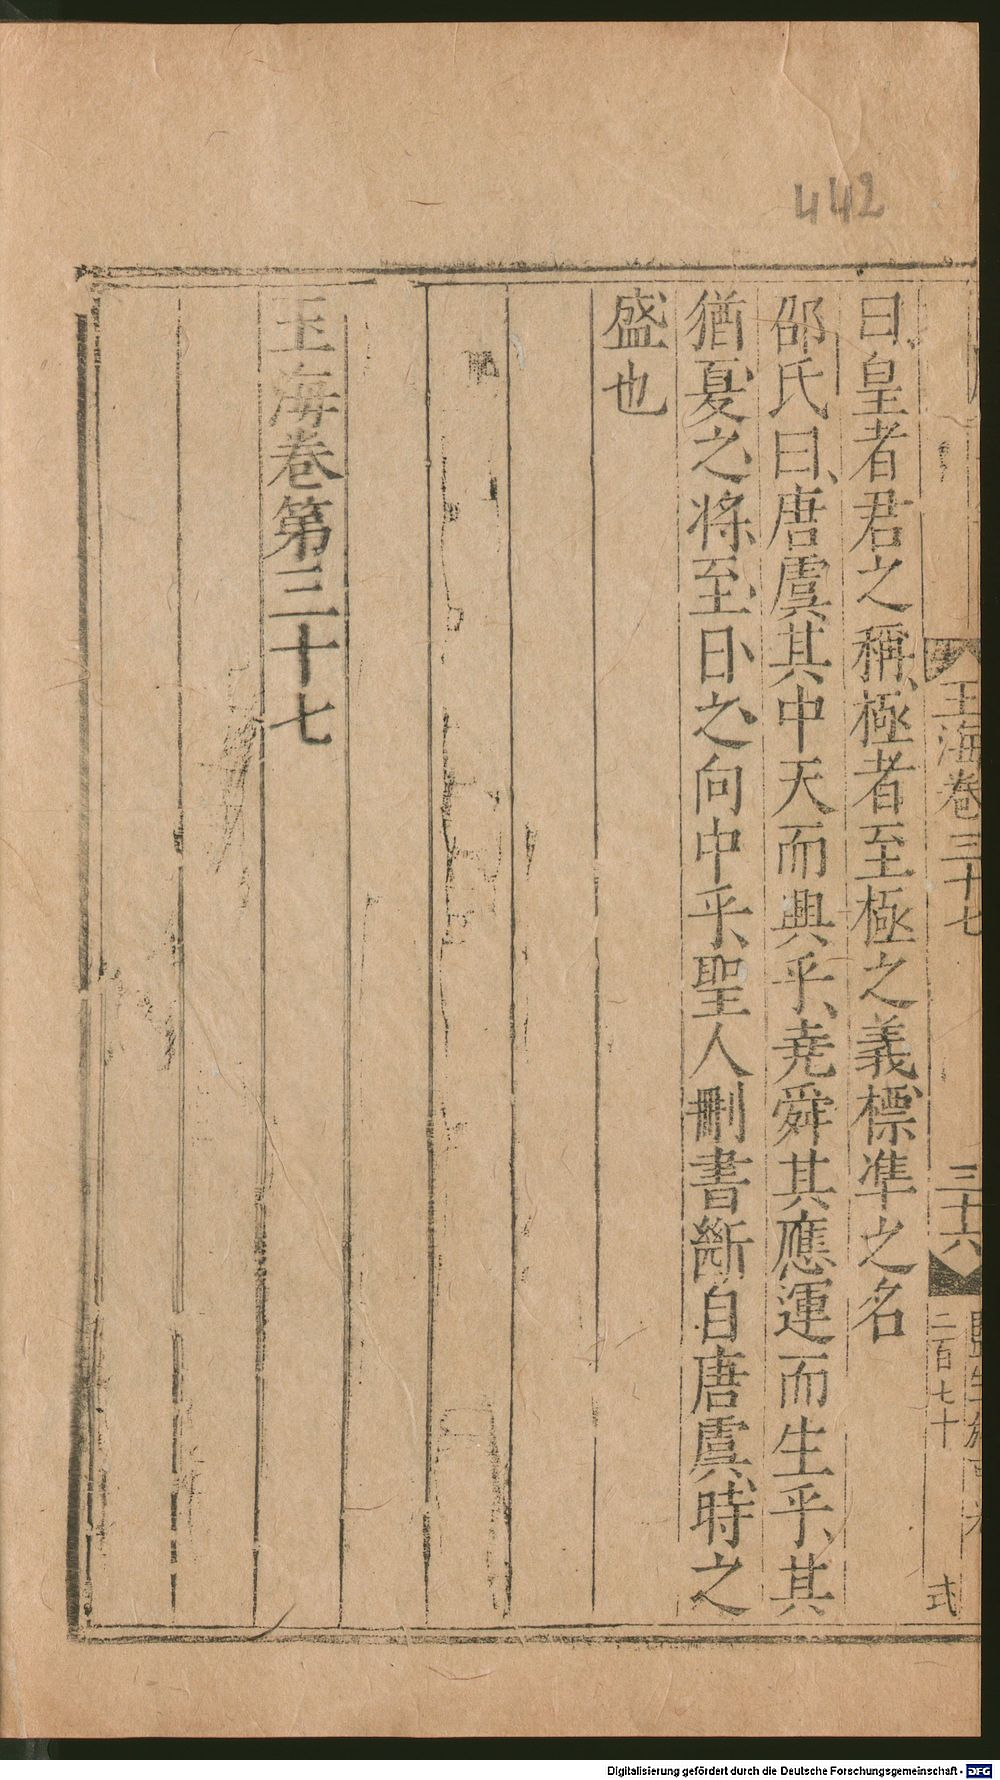 442
王海卷三十七
三十六
二百七十
式
曰皇者君之稱極者至極之義標準之名
邵氏曰唐虞其中天而興乎堯舜其應運而生乎其
猶夏之將至日之向中乎聖人刪書斷自唐虞時之
盛也
王海卷第三十七
Digitalisierung gefördert durch die Deutsche Forschungsgemeinschaft - DFG